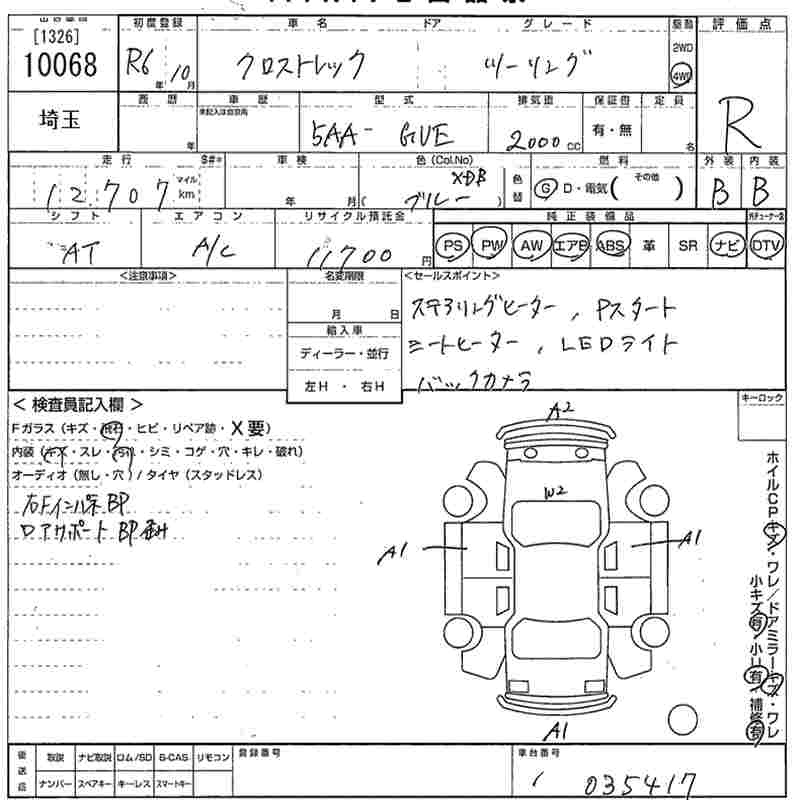 [1326]
10068
埼玉
初度登録
R6 年 10 月
車名 ドア グレード
クロストレック ツーリング
駆動
2WD
4WD
評価点
R
西暦 年
車歴
型式
5AA- GUE
排気量
2000 cc
保証書
有・無
定員 名
走行
12,707 マイル km
車検 年 月
色 (Col.No)
XDB
ブルー
色替
燃料
G D・電気( その他 )
外装 内装
B B
シフト
AT
エアコン
A/C
リサイクル預託金
11700 円
純正装備品
PS PW AW エアB ABS 革 SR ナビ DTV
<注意事項>
名変期限
月 日
輸入車
ディーラー・並行
左H ・ 右H
<セールスポイント>
ステアリングヒーター , Pスタート
シートヒーター , LEDライト
バックカメラ
< 検査員記入欄 >
Fガラス (キズ・飛石・ヒビ・リペア跡・X要)
内装 (キズ・スレ・汚れ・シミ・コゲ・穴・キレ・破れ)
オーディオ (無し・穴) / タイヤ (スタッドレス)
ロアサポート BP
キーロック
A2
W2
A1
A1
A1
ホイルCPキズ・ワレ/ドアミラーキズ・ワレ
小キズ有 小U有 補修有
後送品
取説 ナビ取説 ロム/SD B-CAS リモコン
ナンバー スペアキー キーレス スマートキー
登録番号
車台番号
035417